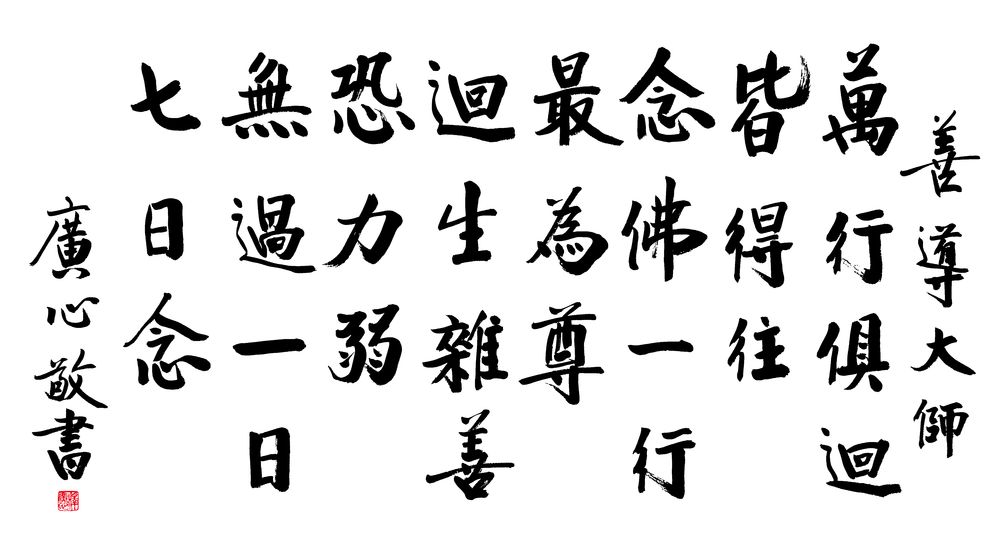 善導大師
萬行俱迴
皆得往
念佛一行
最為尊
迴生雜善
恐力弱
無過一日
七日念
廣心敬書